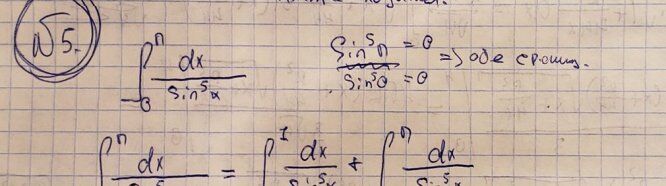 №5.
∫₀^π dx / sin⁵x
sin⁵π = 0
sin⁵0 = 0
=> обе
∫^π dx / = ∫^1 dx / sin⁵x + ∫^π dx / sin⁵x